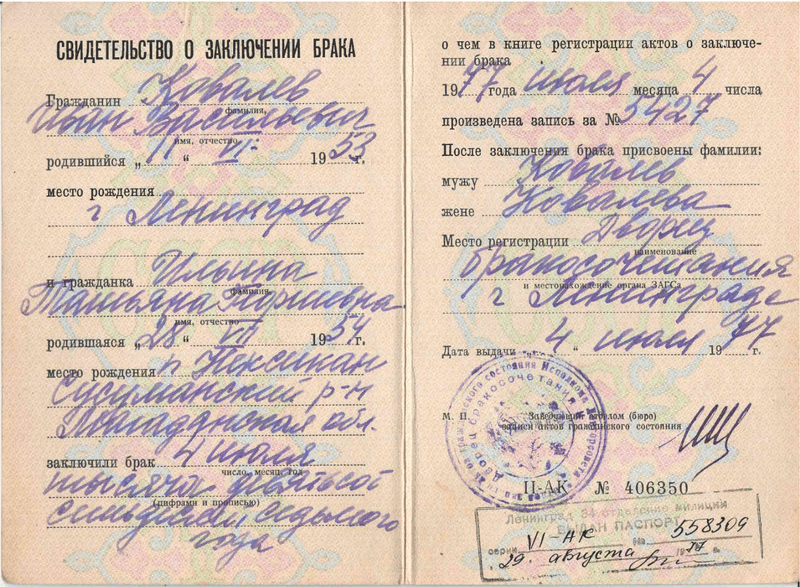 СВИДЕТЕЛЬСТВО О ЗАКЛЮЧЕНИИ БРАКА
Гражданин Ковалев
фамилия,
Иван Васильевич
имя, отчество
родившийся „ 11 “ VI 1953 г.
место рождения
г Ленинград
и гражданка Ильина
фамилия
Татьяна
имя, отчество
родившаяся „ 28 “ VI 1954 г.
место рождения п Нексикан
Сусуманский р-н
Магаданская обл.
заключили брак 4 июля
число, месяц, год
тысяча девятьсот
(цифрами и прописью)
семьдесят седьмого
года
о чем в книге регистрации актов о заключе-
нии брака
1977 года июля месяца 4 числа
произведена запись за № 5427
После заключения брака присвоены фамилии:
мужу Ковалев
жене Ковалева
Место регистрации Дворец
наименование
бракосочетания
и местонахождение органа ЗАГСа
г Ленинграде
Дата выдачи „ 4 “ июля 1977 г.
М. П. Заведующий отделом (бюро)
записи актов гражданского состояния
II-АК № 406350
Ленинград 34 отделение милиции
ВЫДАН ПАСПОРТ
серии VI-АК № 558309
„ 29 августа 1977 г.